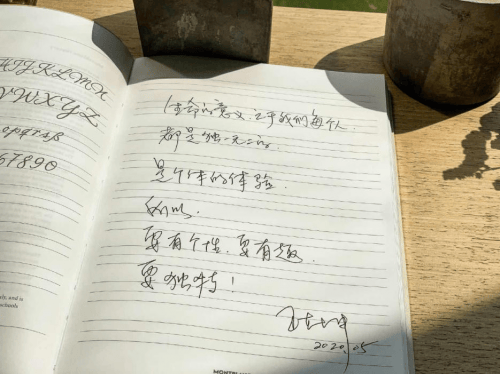 HIJKLMN
VWXYZ
opqrsß
67890
生命的意义,之于我们每个人,
都是独一无二的
是个体的体验.
所以,
要有个性,要有趣.
要独特!
2020.05